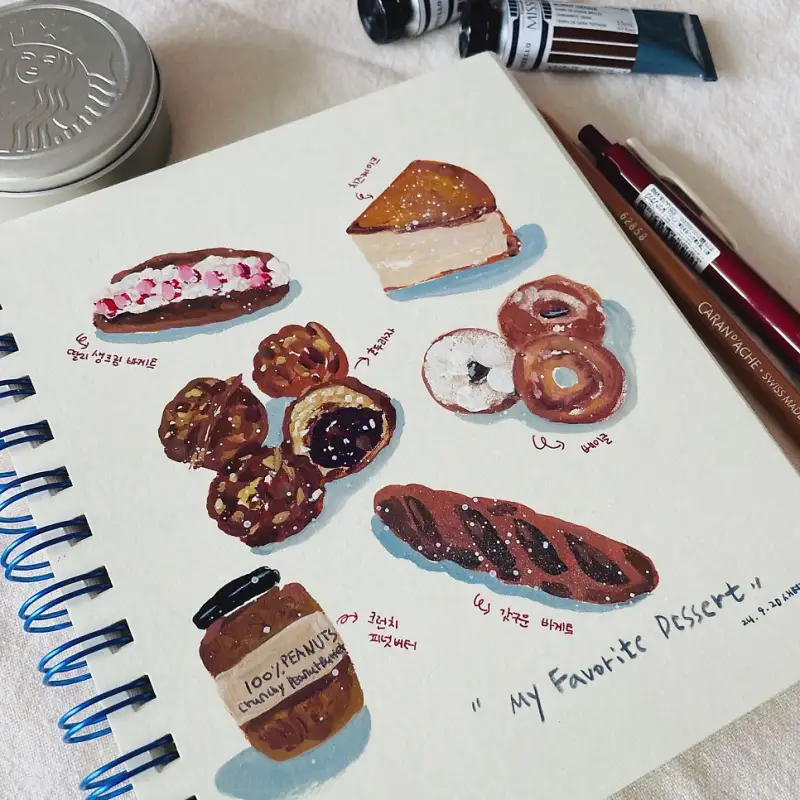 치즈케이크
딸기 생크림 바게트
호두과자
베이글
갓구운 바게트
크런치
피넛버터
100% PEANUTS
Crunchy Peanut Butter
" My Favorite Dessert "
24.9.20
CARAN D'ACHE • SWISS MAD